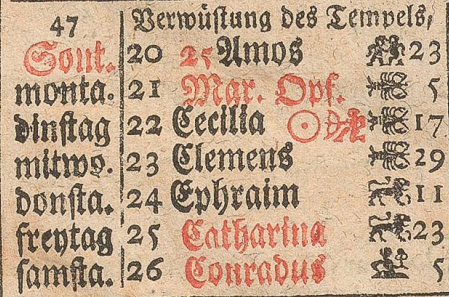 47 Verwüstung des Tempels,
Sont. 20 25 Amos 23
monta. 21 Mar. Opf. 5
dinstag 22 Cecilia ☉ 17
mitwo. 23 Clemens 29
donsta. 24 Ephraim 11
freytag 25 Catharina 23
samsta. 26 Conradus 5